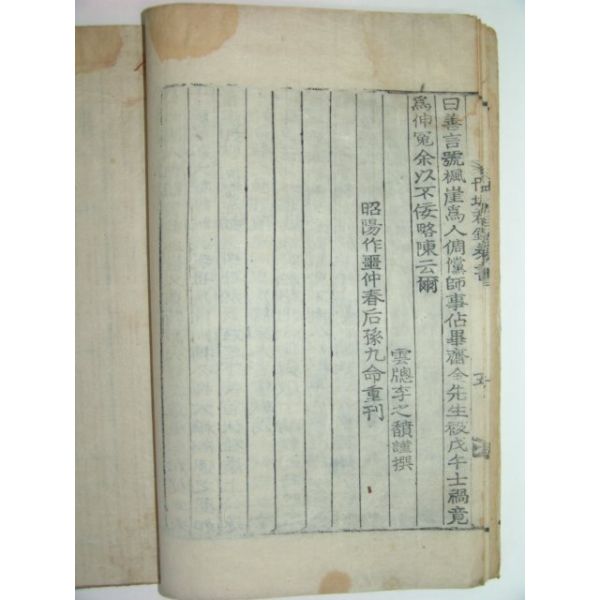 曰善言號楓崖爲人倜儻師事佔畢齋金先生被戊午士禍竟
爲伸冤余以不佞略陳云爾
雲牕李之馩謹撰
昭陽作噩仲春后孫九命重刊